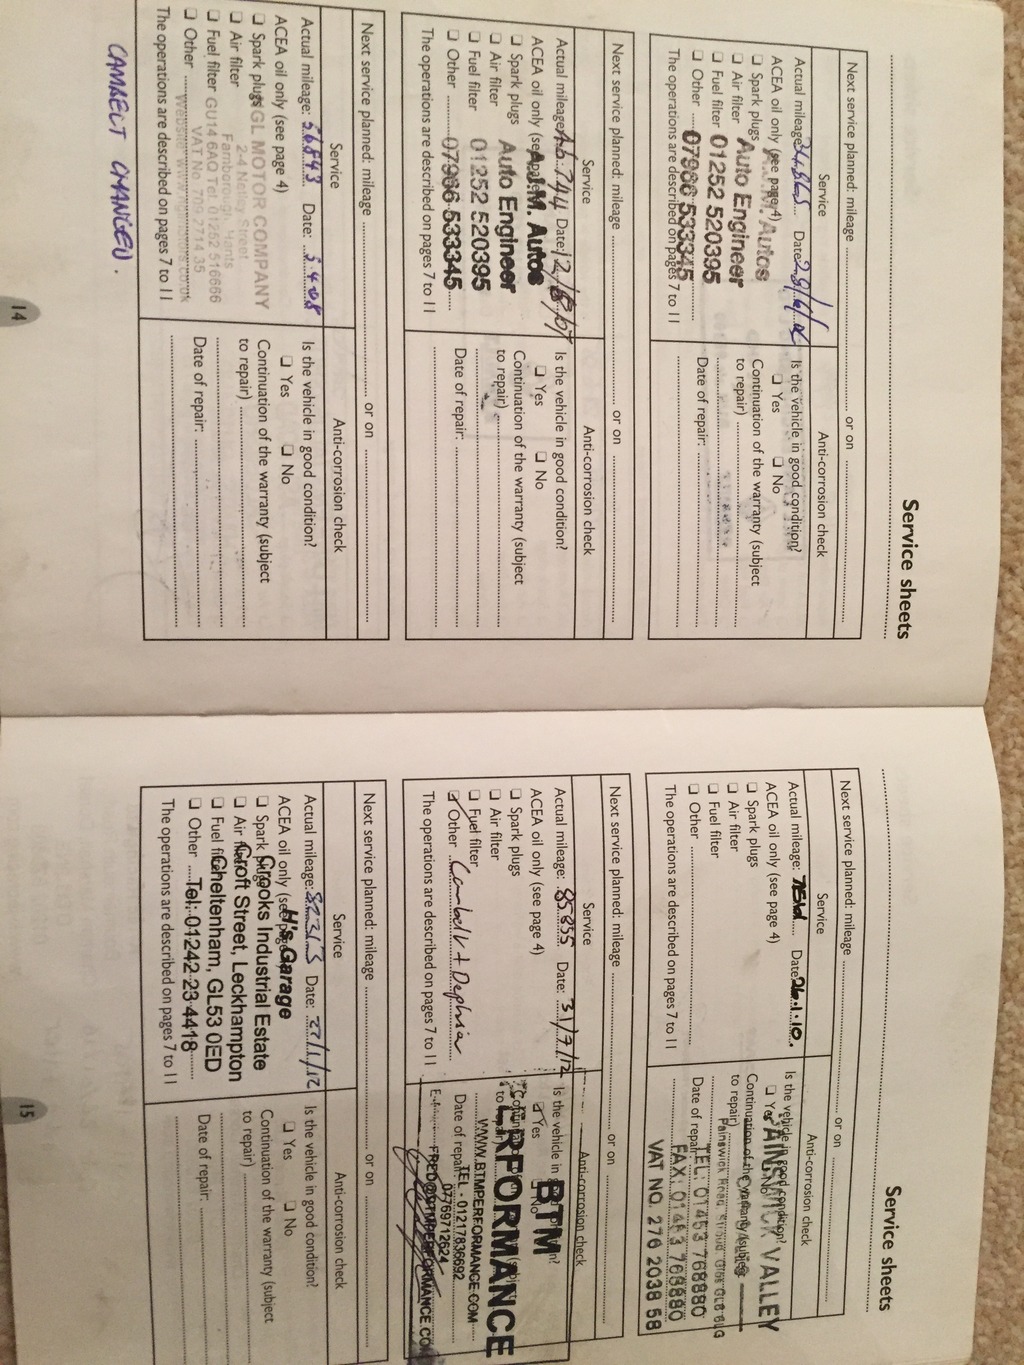 Service sheets
Next service planned: mileage ........ or on ........
Service
Anti-corrosion check
Actual mileage: Date:
ACEA oil only (see page 4)
A.J.M. Autos
Spark plugs
Air filter Auto Engineer
Fuel filter 01252 520395
Other 07966 533345
The operations are described on pages 7 to 11
Is the vehicle in good condition?
Yes No
Continuation of the warranty (subject
to repair)
Date of repair:
Next service planned: mileage ........ or on ........
Service
Anti-corrosion check
Actual mileage: 46.744 Date: 12/8/07
ACEA oil only (see page 4)
A.J.M. Autos
Spark plugs
Air filter Auto Engineer
Fuel filter 01252 520395
Other 07966 533345
The operations are described on pages 7 to 11
Is the vehicle in good condition?
Yes No
Continuation of the warranty (subject
to repair)
Date of repair:
Next service planned: mileage ........ or on ........
Service
Anti-corrosion check
Actual mileage: 56843 Date: 5.4.08
ACEA oil only (see page 4)
Spark plugs GL MOTOR COMPANY
2-4 Netley Street
Air filter Farnborough, Hants
Fuel filter GU14 6AQ Tel: 01252 516666
VAT No 709 2714 35
Other
The operations are described on pages 7 to 11
Is the vehicle in good condition?
Yes No
Continuation of the warranty (subject
to repair)
Date of repair:
CAMBELT CHANGED.
14
Service sheets
Next service planned: mileage ........ or on ........
Service
Anti-corrosion check
Actual mileage: Date: 26.1.10.
ACEA oil only (see page 4)
Spark plugs
Air filter
Fuel filter
Other
The operations are described on pages 7 to 11
Is the vehicle in good condition?
Yes No
PAINSWICK VALLEY
Continuation of the warranty (subject
to repair)
Painswick Road
Date of repair:
TEL: 01453 768880
FAX: 01453 768880
VAT NO. 276 2038 58
Next service planned: mileage ........ or on ........
Service
Anti-corrosion check
Actual mileage: 85835 Date: 31/7/12
ACEA oil only (see page 4)
Spark plugs
Air filter
Fuel filter
Other Cambelt + Dephia
The operations are described on pages 7 to 11
Is the vehicle in
Yes No
BTM
PERFORMANCE
WWW.BTMPERFORMANCE.COM
Date of repair:
TEL - 01217836692
07769712624
FRED@BTMPERFORMANCE.CO
Next service planned: mileage ........ or on ........
Service
Anti-corrosion check
Actual mileage: 82313 Date: 27/1/12
ACEA oil only (see page 4)
H's Garage
Spark plugs Crooks Industrial Estate
Air filter Croft Street, Leckhampton
Fuel filter Cheltenham, GL53 0ED
Other Tel: 01242 23 4418
The operations are described on pages 7 to 11
Is the vehicle in good condition?
Yes No
Continuation of the warranty (subject
to repair)
Date of repair:
15